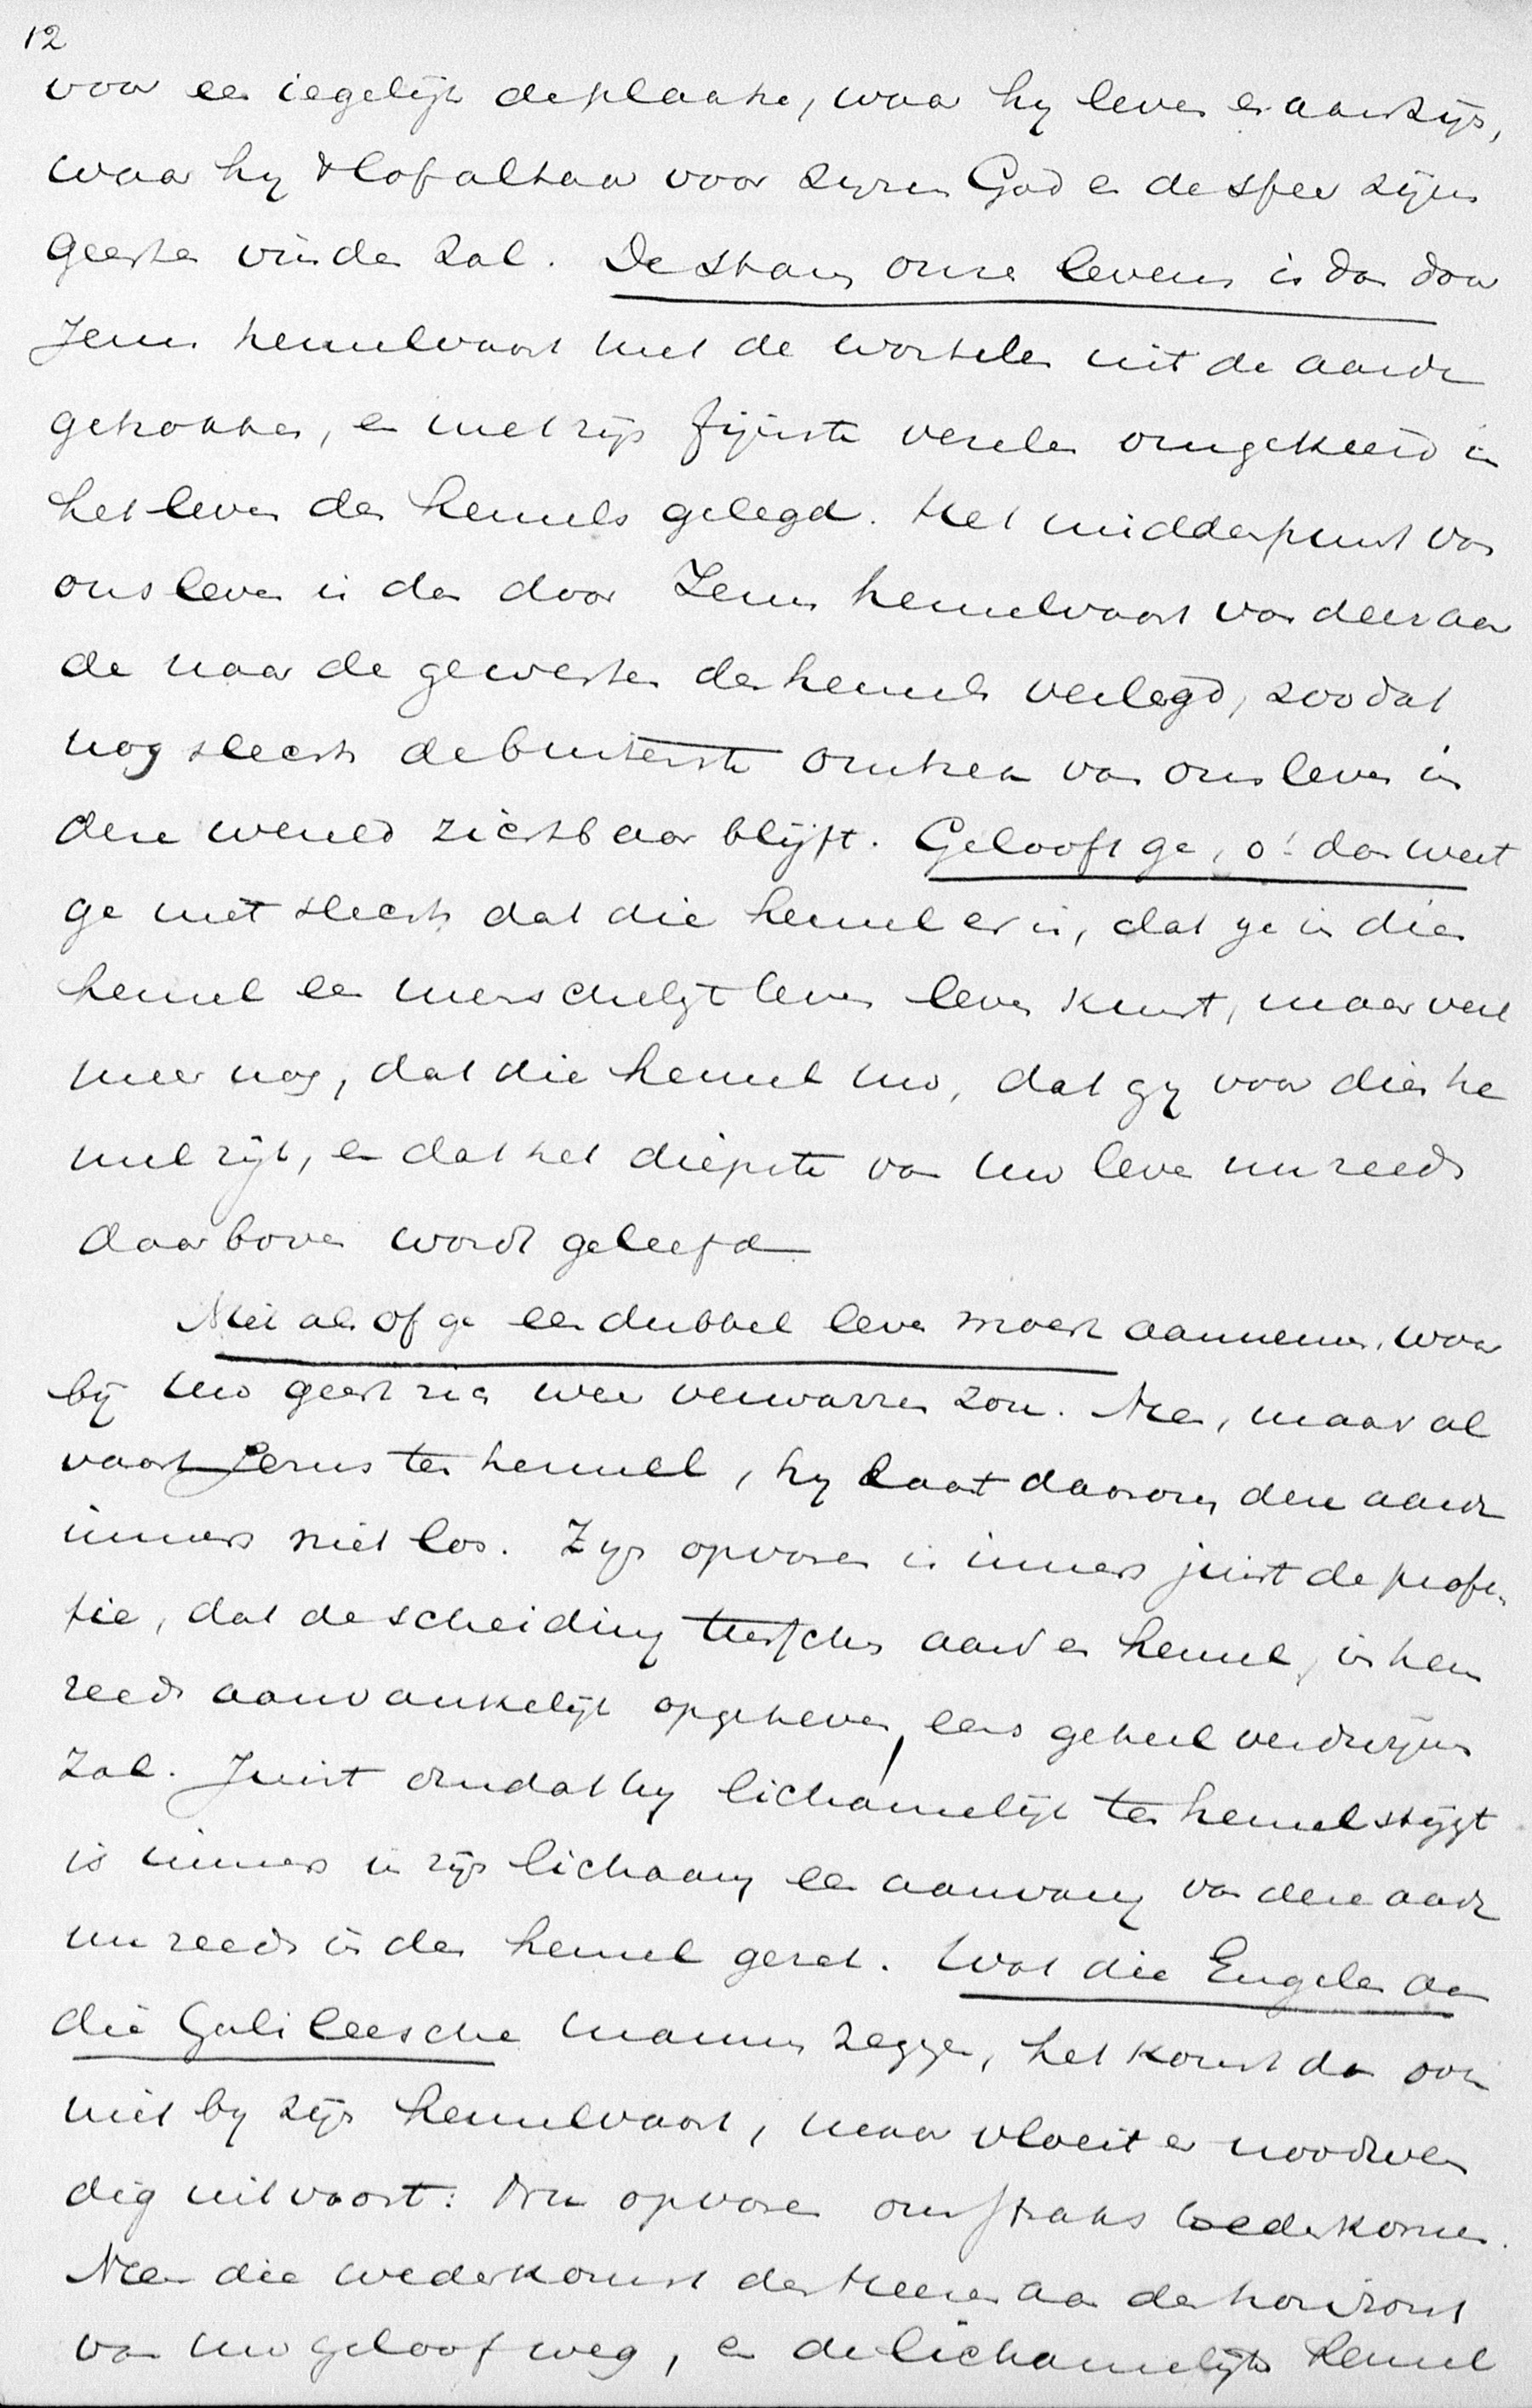 12
voor een iegelijk de plaatse, waar hy leven en aanzijn,
waar hy 't lofaltaar voor zynen God en de sfeer zijns
geestes vinden zal. De stam onzes levens is dan door
Jezus hemelvaart met de wortelen uit de aarde
getrokken, en met zijn fijnste vezelen omgekeerd in
het leven des hemels gelegd. Het middenpunt van
ons leven is dan door Jezus hemelvaart van deez aar
de naar de gewesten des hemels verlegd, zoodat
nog slechts de buitenste omtrek van ons leven in
deze wereld zichtbaar blijft. Gelooft ge, o! dan weet
ge niet slechts dat die hemel er is, dat ge in dien
hemel een menschelijk leven leven kunt, maar veel
meer nog, dat die hemel uw, dat gy voor dien he
mel zijt, en dat het diepste van uw leven nu reeds
daarboven wordt geleefd
Niet als of ge een dubbel leven moest aannemen, waar
bij uw geest zich weer verwarren zou. Neen, maar al
vaart Jezus ten hemel, hy laat daarom deze aarde
immers niet los. Zijn opvaren is immers juist de profe-
tie, dat de scheiding tusschen aard en hemel, in hem
reeds aanvankelijk opgeheven, eens geheel verdwijnen
zal. Juist omdat hy lichamelijk ten hemel stijgt
is immers in zijn lichaam een aanvang van deze aarde
nu reeds in den hemel gezet. Wat die Engelen aan
die Galileesche mannen zeggen, het komt dan ook
niet by zijn hemelvaart, maar vloeit er noodwen
dig uit voort: Nu opvaren om straks wederkomen.
Neem die wederkomst des Heeren aan den horizont
van uw geloof weg, en de lichamelijke hemel